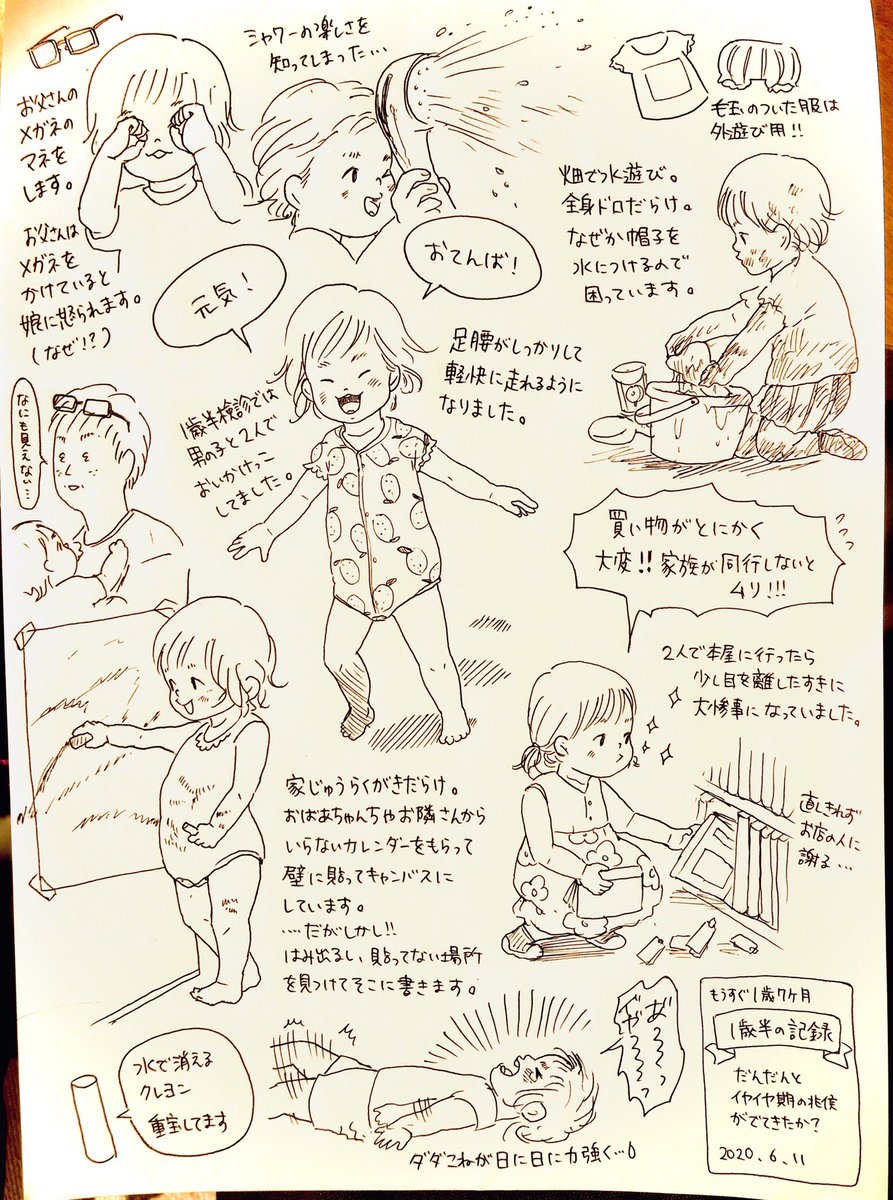 お父さんの
メガネの
マネを
します。
お父さんは
メガネを
かけていると
娘に怒られます。
(なぜ!?)
なにも見えない…
シャワーの楽しさを
知ってしまった…
毛玉のついた服は
外遊び用!!
畑で水遊び。
全身ドロだらけ。
なぜか帽子を
水につけるので
困っています。
元気!
おてんば!
1歳半検診では
男の子と2人で
おいかけっこ
してました。
足腰がしっかりして
軽快に走れるように
なりました。
買い物がとにかく
大変!!家族が同行しないと
ムリ!!!
2人で本屋に行ったら
少し目を離したすきに
大惨事になっていました。
直しきれず
お店の人に
謝る…
家じゅうらくがきだらけ。
おばあちゃんちゃお隣さんから
いらないカレンダーをもらって
壁に貼ってキャンバスに
しています。
……だがしかし!!
はみ出るし、貼ってない場所
を見つけてそこに書きます。
水で消える
クレヨン
重宝してます
ダダこねが日に日に力強く…
もうすぐ1歳7ヶ月
1歳半の記録
だんだんと
イヤイヤ期の兆候
がでてきたか?
2020.6.11